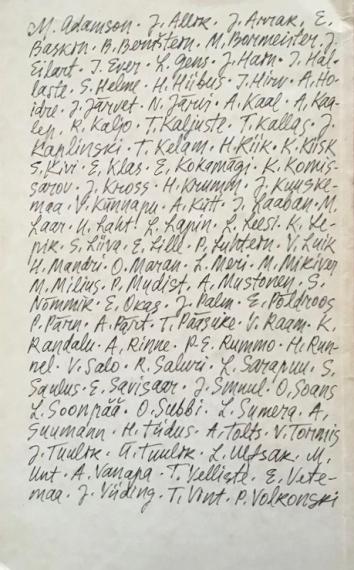 M. Adamson · J. Allik · J. Arrak, E.
Baskin · B. Bernštein · M. Bormeister, J.
Eilart · I. Ever · L. Gens · J. Harn · I. Hal-
laste, S. Helme · H. Hiibus · J. Hirv, A. Ho-
idre · J. Järvet · N. Järvi · A. Kaal · A. Kaa-
lep, R. Kaljo · T. Kaljuste, T. Kallas, J.
Kaplinski · T. Kelam, H. Kiik · K. Kiisk
S. Kivi · E. Klas · E. Kokamägi · K. Komis-
sarov · J. Kross · H. Krumm · J. Kuuske-
maa · V. Künnapu · A. Kütt · J. Laaban · M.
Laar · U. Laht · L. Lapin · L. Leesi · K. Le-
pik · S. Liiva · E. Lill · P. Luhtein · V. Luik
H. Mandri · O. Maran · L. Meri · M. Mikiver
M. Milius · P. Mudist · A. Mustonen · S.
Nõmmik · E. Okas · J. Palm · E. Põldroos
P. Pärn · A. Pärt · T. Pätsuke · V. Raam · K.
Randalu · A. Rinne · P-E. Rummo · H. Run-
nel · V. Salo · R. Saluri · L. Sarapuu · S.
Saulus · E. Savisaar · J. Smuul · O. Soans
L. Soonpää · O. Subbi · L. Sumera · A.
Suumann · H. Tiidus · A. Tolts · V. Tormis
J. Tuulik · Ü. Tuulik · L. Ulfsak · M.
Unt · A. Vanapa · T. Velliste · E. Vete-
maa · J. Viiding · T. Vint · P. Volkonski